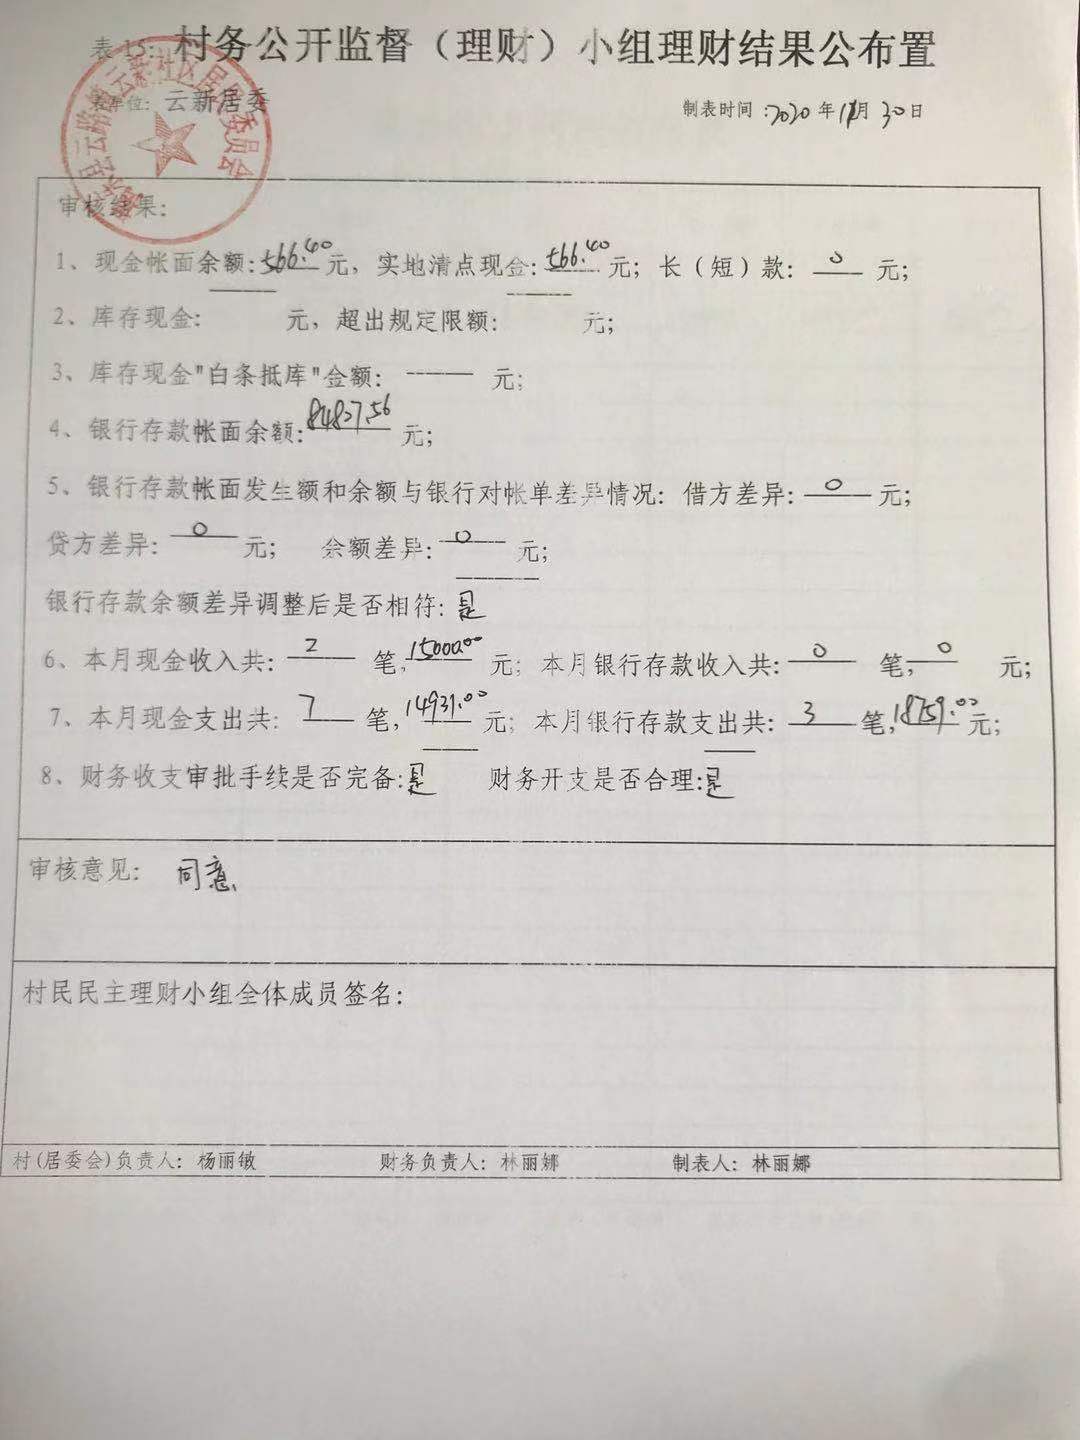 表 15: 村务公开监督（理财）小组理财结果公布置
表单位: 云新居委
制表时间:2020年11月30日
云路镇云新社区居民委员会
审核结果:
1、现金帐面余额:566.40元，实地清点现金:566.40元；长（短）款: 0 元；
2、库存现金:　　元，超出规定限额:　　元；
3、库存现金"白条抵库"金额:　　元；
4、银行存款帐面余额:84827.56元；
5、银行存款帐面发生额和余额与银行对帐单差异情况: 借方差异: 0 元；
贷方差异: 0 元；　余额差异: 0 元；
银行存款余额差异调整后是否相符: 是
6、本月现金收入共: 2 笔,15000.00元；本月银行存款收入共: 0 笔, 0 元；
7、本月现金支出共: 7 笔,14931.00元；本月银行存款支出共: 3 笔,18759.00元；
8、财务收支审批手续是否完备:是　财务开支是否合理:是
审核意见: 同意
村民民主理财小组全体成员签名:
村(居委会)负责人: 杨丽敏　财务负责人: 林丽娜　制表人: 林丽娜